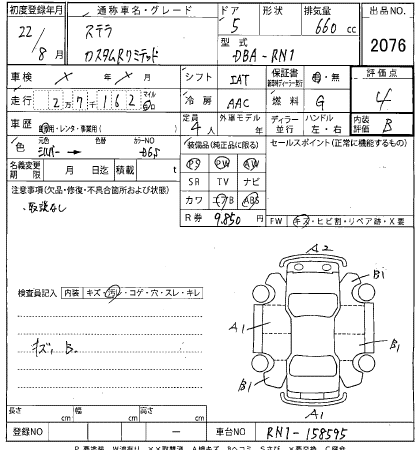 初度登録年月 通称車名・グレード ドア 形状 排気量 出品NO.
22/8月 ステラ カスタムRリミテッド 5 660cc 2076
型式 DBA-RN1
車検 / 月 シフト IAT 保証書 有・無 評価点 4
走行 27,162 マイル 冷房 AAC 燃料 G
車歴 自家用・レンタ・事業用( ) 定員 4人 外車モデル ディーラー 並行 ハンドル 左・右 内装評価 B
色 元色 シルバー 色替 カラーNO D6S 装備品(純正品に限る) セールスポイント(正常に機能するもの)
名義変更期限 月 日迄 積載 t PS PW AW
注意事項(欠品・修復・不具合箇所および状態) SR TV ナビ
取説なし カワ エアB ABS
R券 9,850円 FW キズ・ヒビ割・リペア跡・X要
検査員記入 内装 キズ・汚レ・コゲ・穴・スレ・キレ
キズ、B.
A2
B1
A1
B1
B1
A1
長さ cm 幅 cm 高さ cm
登録NO ー 車台NO RN1-158595